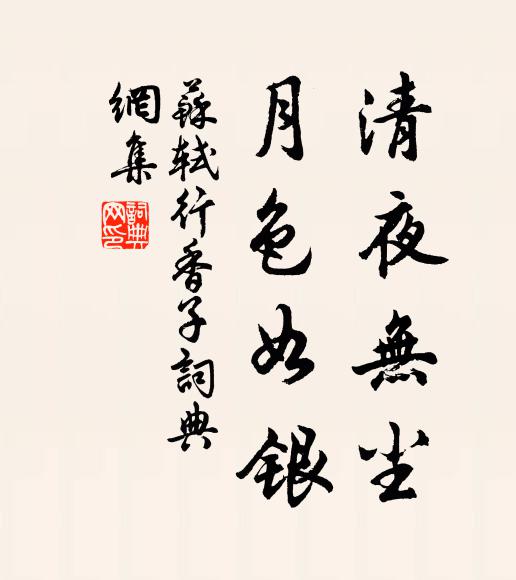 清夜無塵
月色如銀
蘇軾行香子詞典
網集
詞典网印